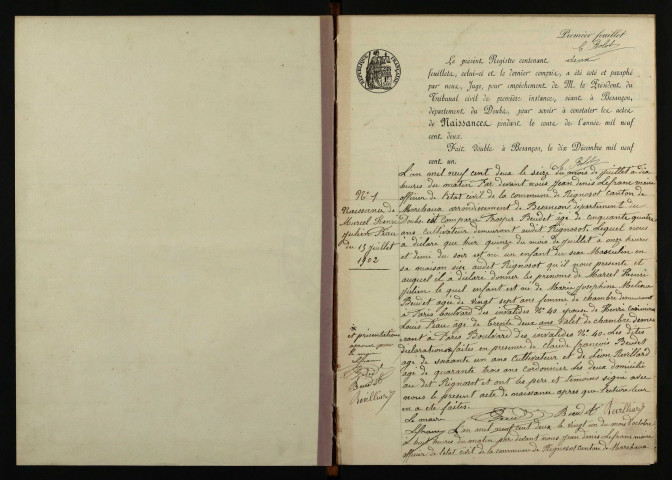 Premier feuillet
Le présent Registre contenant deux
feuillets, celui-ci et le dernier compris, a été coté et paraphé
par nous, Juge, pour empêchement de M. le Président du
Tribunal civil de première instance, séant à Besançon,
département du Doubs, pour servir à constater les actes
de Naissances pendant le cours de l'année mil neuf
cent deux.
Fait double à Besançon, le dix Décembre mil neuf
cent un.
RÉPUBLIQUE FRANÇAISE
N° 1
Naissance de
Marcel Henri
Julien
du 15 juillet
1902
L'an mil neuf cent deux le seize du mois de juillet à dix
heures du matin Par devant nous Jean Denis Lefranc maire
officier de l'état civil de la commune de Rignosot canton de
Marchaux arrondissement de Besançon département du
Doubs est comparu Prosper Beudet âgé de cinquante quatre
ans, cultivateur demeurant audit Rignosot, lequel nous
a déclaré que hier quinze du mois de juillet à onze heures
et demi du soir est né un enfant du sexe Masculin en
sa maison sise audit Rignosot qu'il nous présente et
auquel il a déclaré donner les prénoms de Marcel Henri
Julien le quel enfant est né de Marie Joséphine
Beudet agée de vingt sept ans femme de chambre demeurant
à Paris boulvard des invalides N° 40 épouse de Henri
Louis age de trente deux ans valet de chambre demeu
rant à Paris Boulvard des invalides N° 40. Les dites
déclarations faites en présence de claude françois Beudet
agé de soixante un ans cultivateur et de Léon
agé de quarante trois ans cordonnier les deux domiciliés
au dit Rignosot et ont les pere et témoins signé avec
nous le présent acte de naissance après que lecture leur
en a été faite.
Le maire
Lefranc
L'an mil neuf cent deux le vingt un du mois d'octobre
à huit heures du matin par devant nous Jean Denis Lefranc maire
officier de l'état civil de la commune de Rignosot canton de Marchaux
et présentation